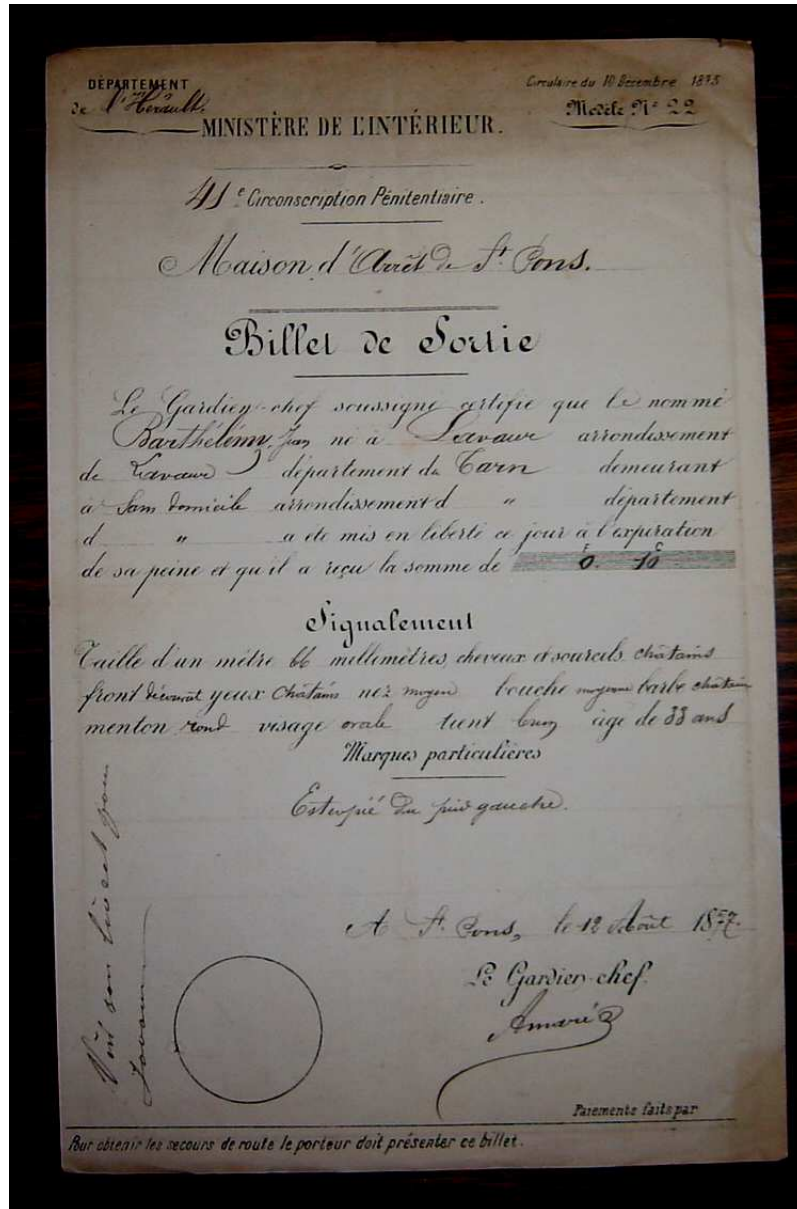 DÉPARTEMENT
de l'Hérault.
Circulaire du 10 Décembre 1875
Modèle N° 22
MINISTÈRE DE L'INTÉRIEUR.
41e Circonscription Pénitentiaire.
Maison d'Arrêt de St Pons.
Billet de Sortie
Le Gardien-chef soussigné certifie que le nommé
Barthélémy, Jean né à Lavaur arrondissement
de Lavaur département du Tarn demeurant
à Sans domicile arrondissement d " département
d " a été mis en liberté ce jour à l'expiration
de sa peine et qu'il a reçu la somme de 0. 10
Signalement
Taille d'un mètre 66 millimètres, cheveux et sourcils châtains
front découvert yeux châtains nez moyen bouche moyenne barbe châtain
menton rond visage ovale teint brun âgé de 33 ans
Marques particulières
Estropié du pied gauche.
A St Pons, le 12 Août 1877.
Le Gardien-chef.
Vu son livret pour
Paiements faits par
Pour obtenir les secours de route le porteur doit présenter ce billet.